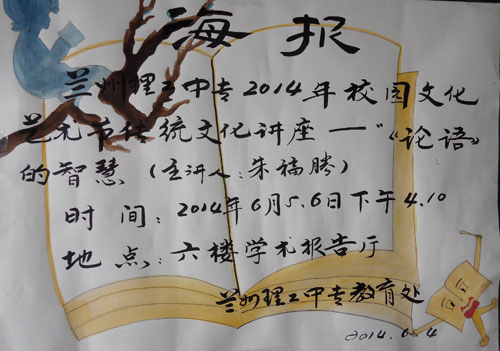 海报
兰州理工中专2014年校园文化
艺术节传统文化讲座一"《论语》
的智慧（主讲人：朱福腾）
时间：2014年6月5.6日下午4.10
地点：六楼学术报告厅
兰州理工中专教育处
2014.6.4